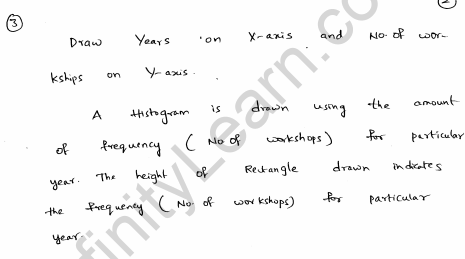 2
3
Draw Years on X-axis and No. of wor-
kships on Y-axis.
A Histogram is drawn using the amount
of frequency ( No of workshops ) for particular
year. The height of Rectangle drawn indicates
the frequency ( No. of workshops) for particular
year.
finityLearn.co